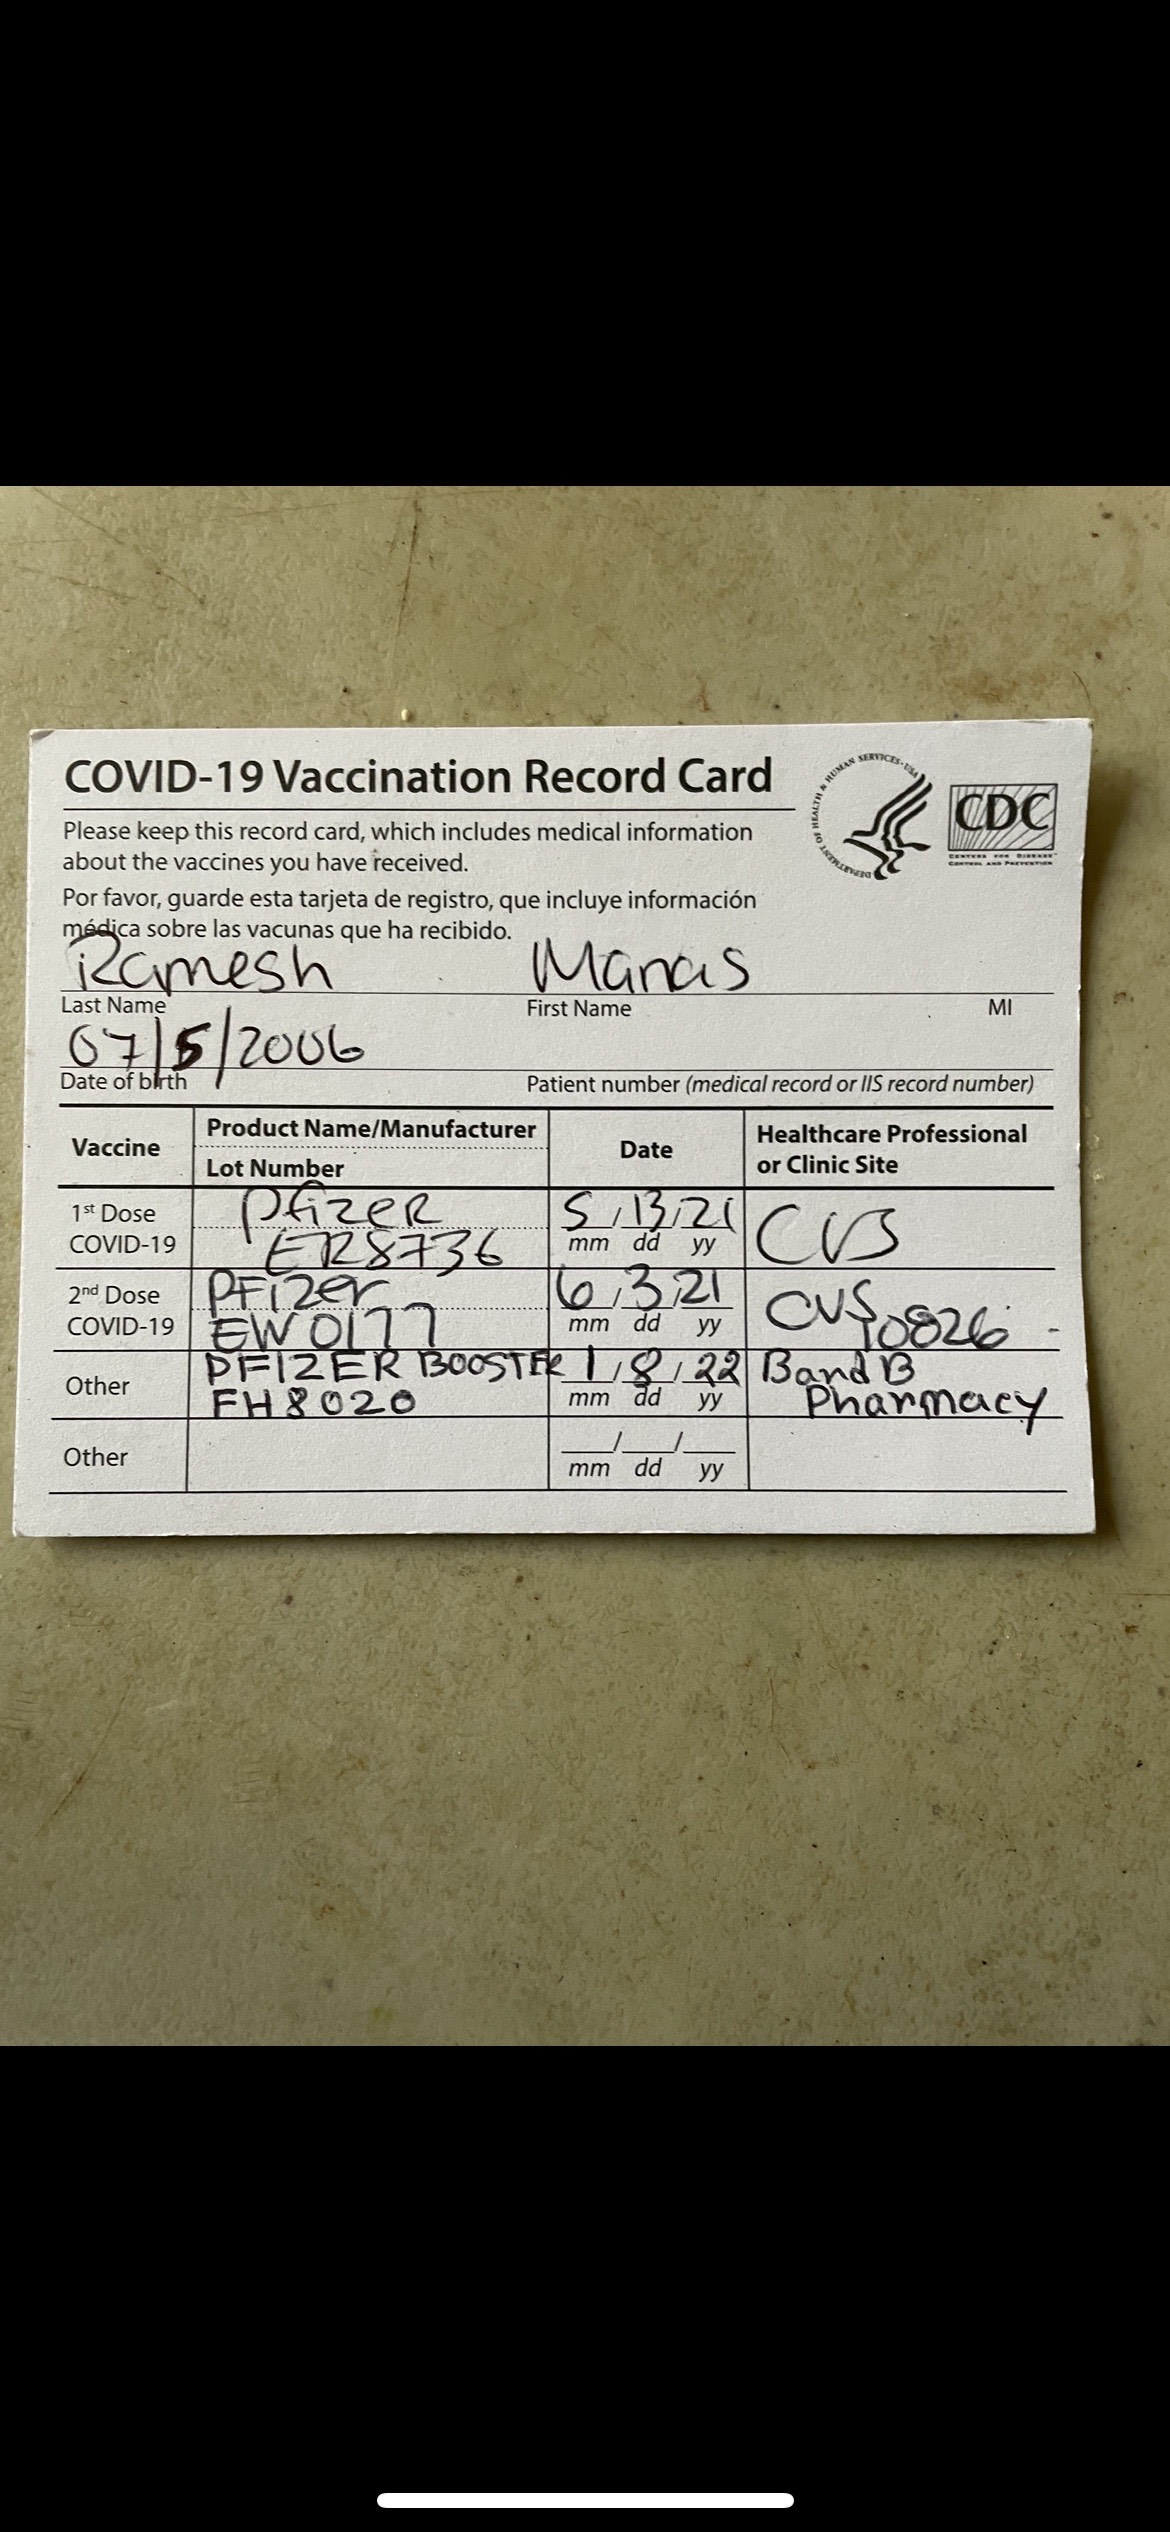 COVID-19 Vaccination Record Card
DEPARTMENT OF HEALTH & HUMAN SERVICES • USA
CDC
CENTERS FOR DISEASE
CONTROL AND PREVENTION
Please keep this record card, which includes medical information
about the vaccines you have received.
Por favor, guarde esta tarjeta de registro, que incluye información
médica sobre las vacunas que ha recibido.
Ramesh Manas
Last Name First Name MI
07/5/2006
Date of birth Patient number (medical record or IIS record number)
Vaccine
Product Name/Manufacturer
Lot Number
Date
Healthcare Professional
or Clinic Site
1st Dose
COVID-19
PfizeR
ER8736
5/13/21
mm dd yy
CVS
2nd Dose
COVID-19
PFizer
EW0177
6/3/21
mm dd yy
CVS
10826
Other
PFIZER BOOSTER
FH8020
1/8/22
mm dd yy
Band B
Pharmacy
Other
__/__/__
mm dd yy